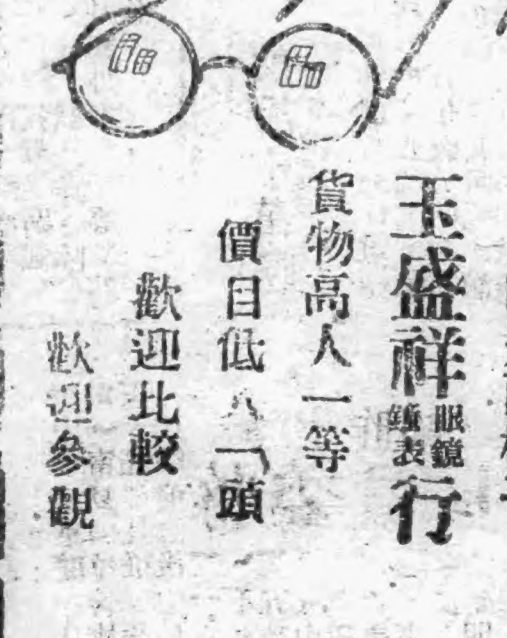 玉盛祥眼鏡鐘表行
貨物高人一等
價目低人一頭
歡迎比較
歡迎參觀